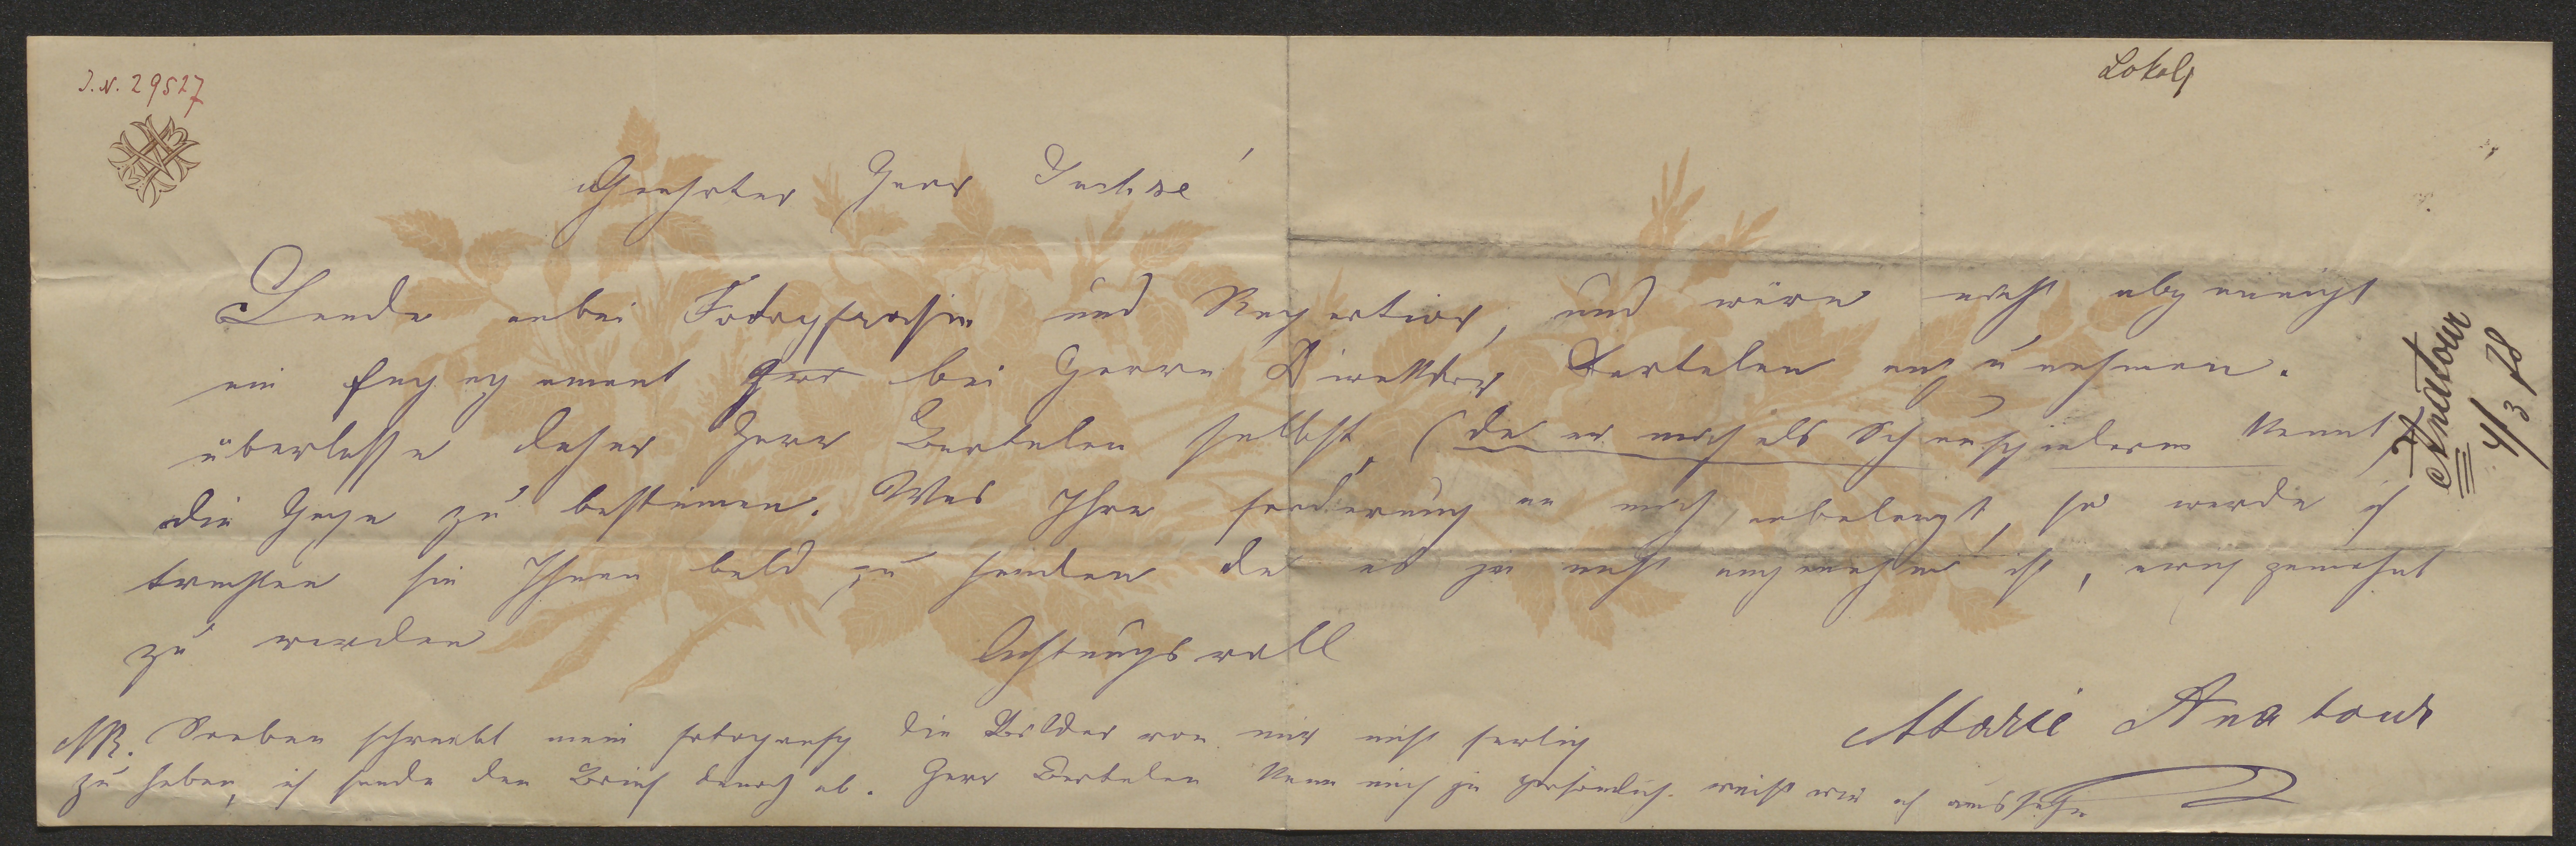 I.N. 29527
Lokal
Geehrter Herr
Sende anbei Fotografien und Repertior, und wäre nicht abgeneigt
ein Engagement bei Herrn Direktor Bertalan anzunehmen.
überlasse daher Herr Bertalan selbst, (da er mich als Schauspielerin kennt)
die Gage zu bestimmen. Was Ihre forderung an mich anbelangt, so werde ich
trachten sie Ihnen bald zu senden da es ja nicht angenehm ist, gemahnt
zu werden
Achtungsvoll
Marie Anatour
NB. Soeben schreibt mein fotograf die Bilder von mir nicht fertig
zu haben, ich sende den Brief denoch ab. Herr Bertalan kenn mich ja persönlich weist wie ich aussehe
Anatour
4/3 78